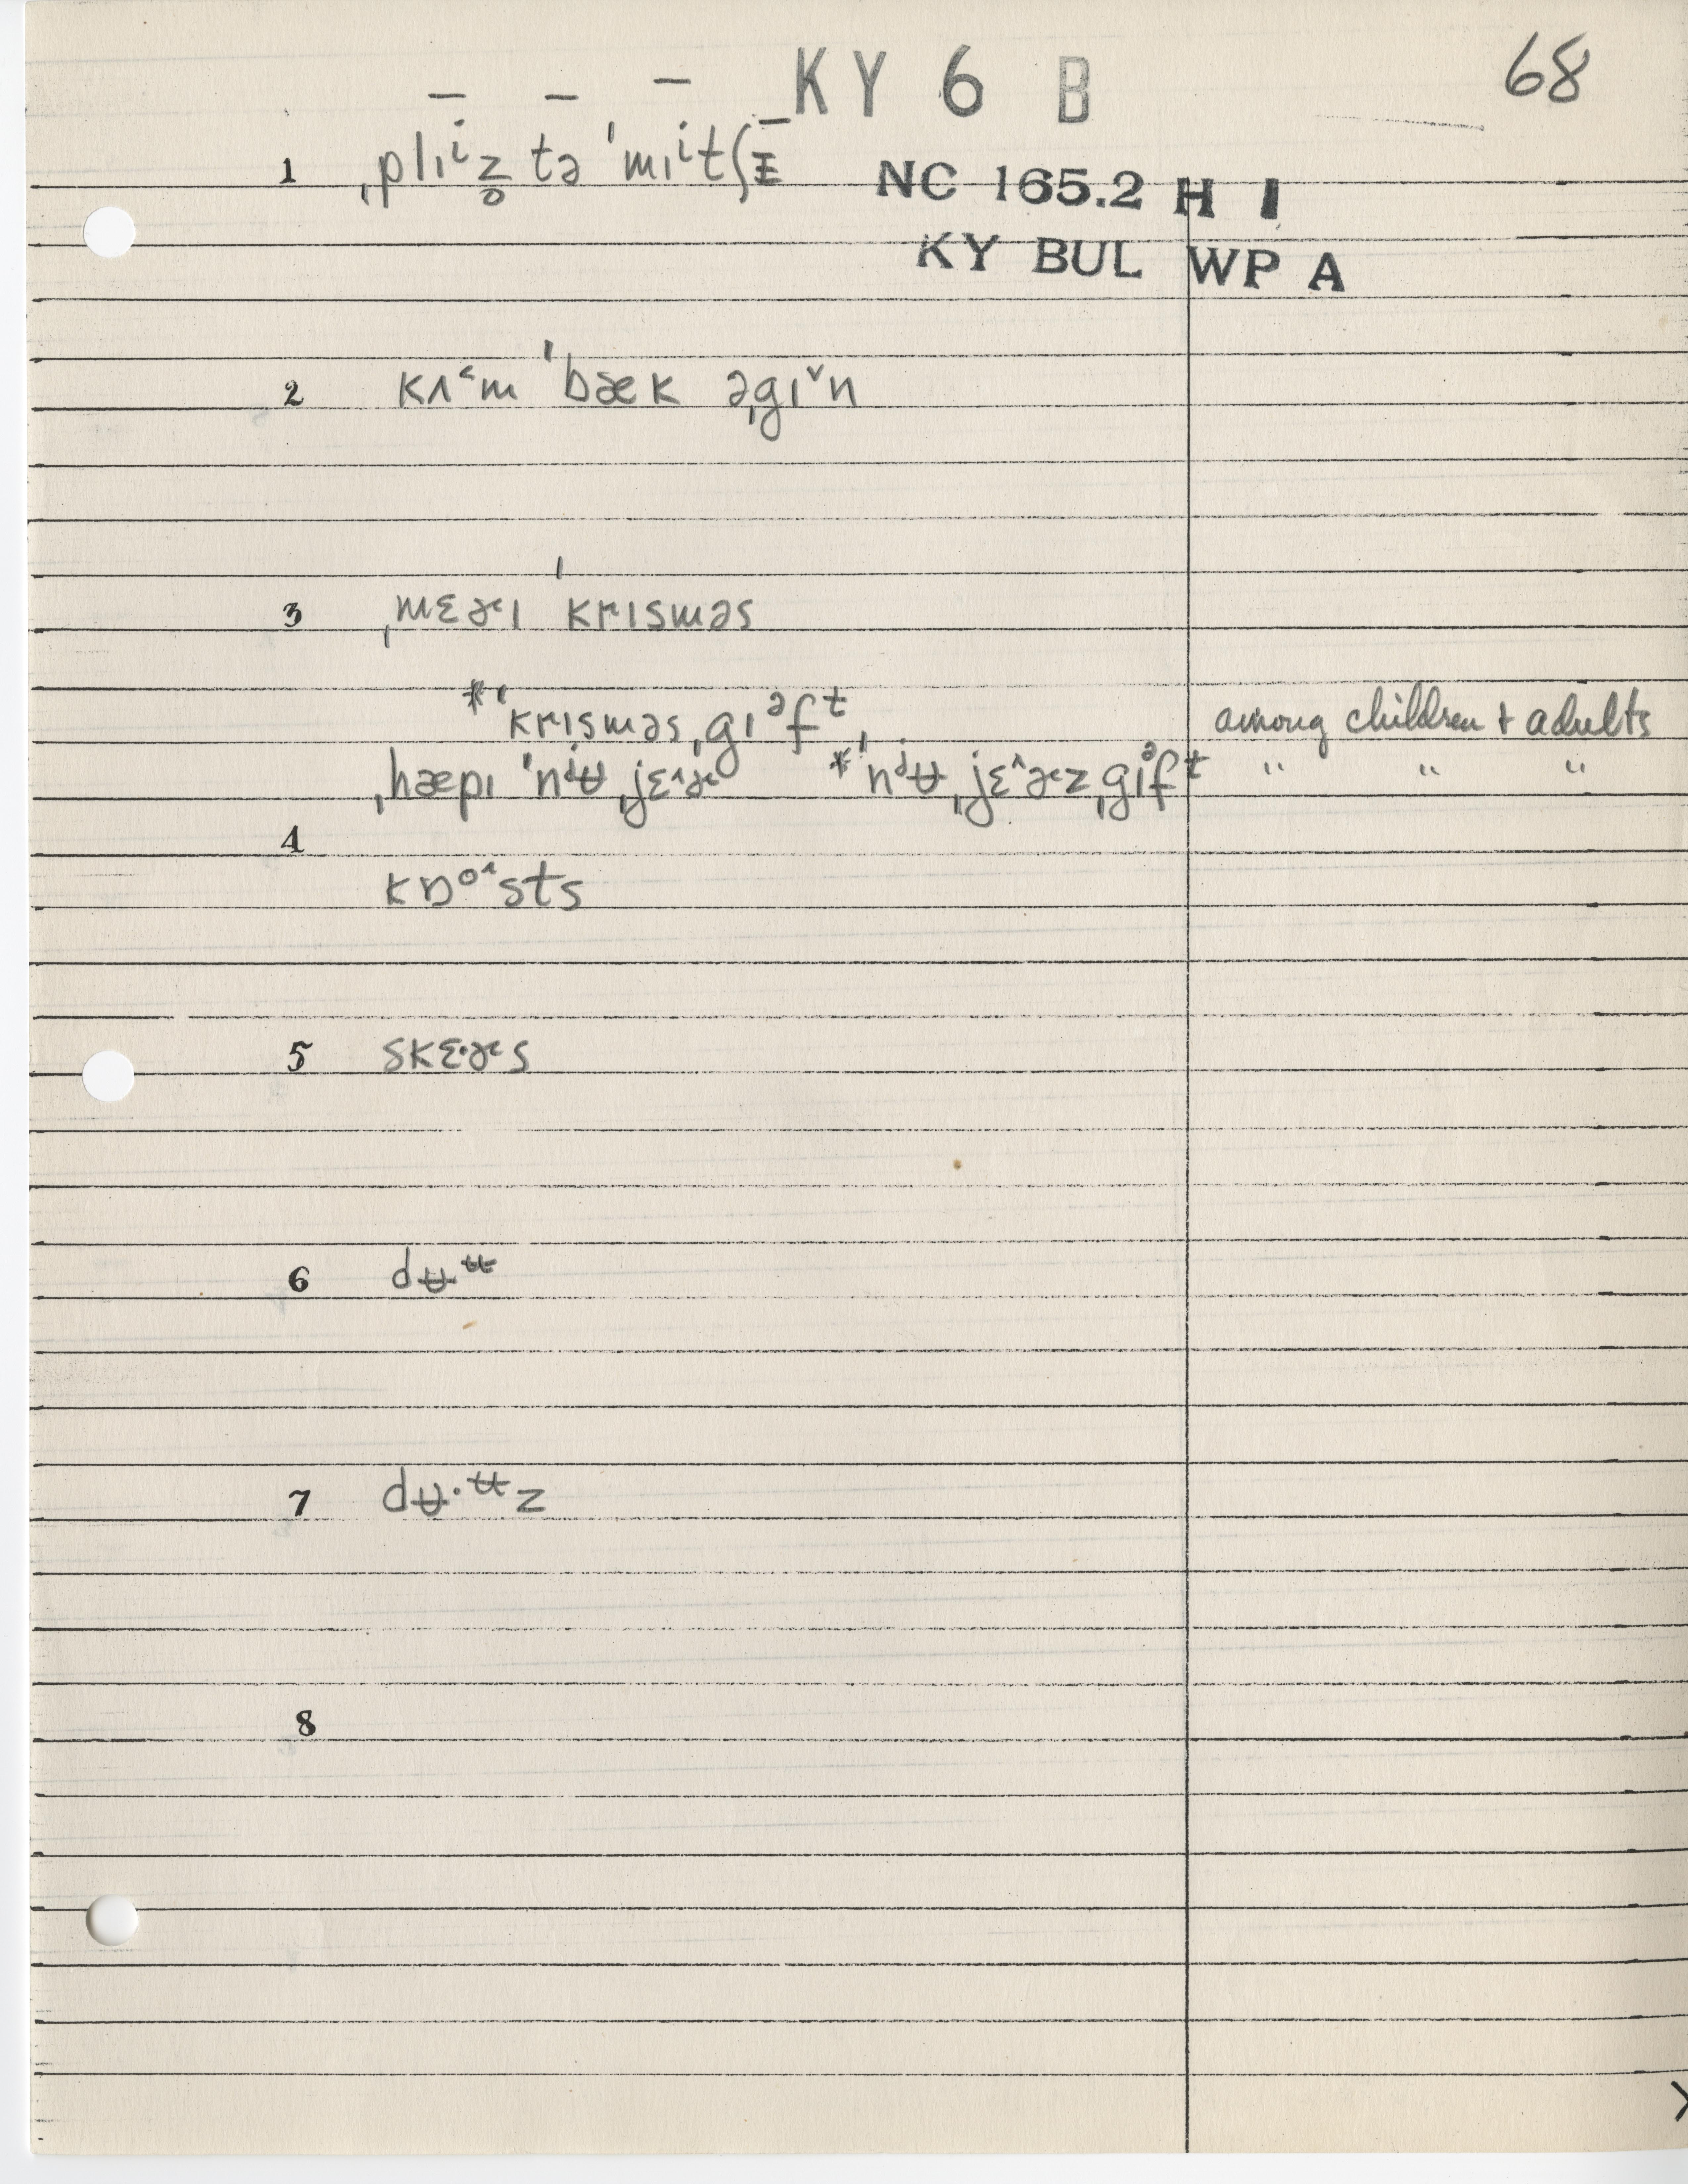 – – – – KY 6 B 68
1 ˌplɪⁱz̥ tə ˈmɪⁱtʃɪ̵
NC 165.2 H I
KY BUL WP A
2 kʌ˂m ˈbæk əˌgɪ˅n
3 ˌmɛɚɪ ˈkrɪsməs
*ˈkrɪsməsˌgɪᵊfᵗ, among children + adults
ˌhæpɪ ˈnʲʉˌjɛ˄ɚ *ˈnʲʉˌjɛ˄ɚzˌgɪᵊfᵗ " " "
4
kɒᵒ˄sts
5 skɛ·ɚs
6 dʉᵗᵗ
7 dʉ·ᵗᵗz
8